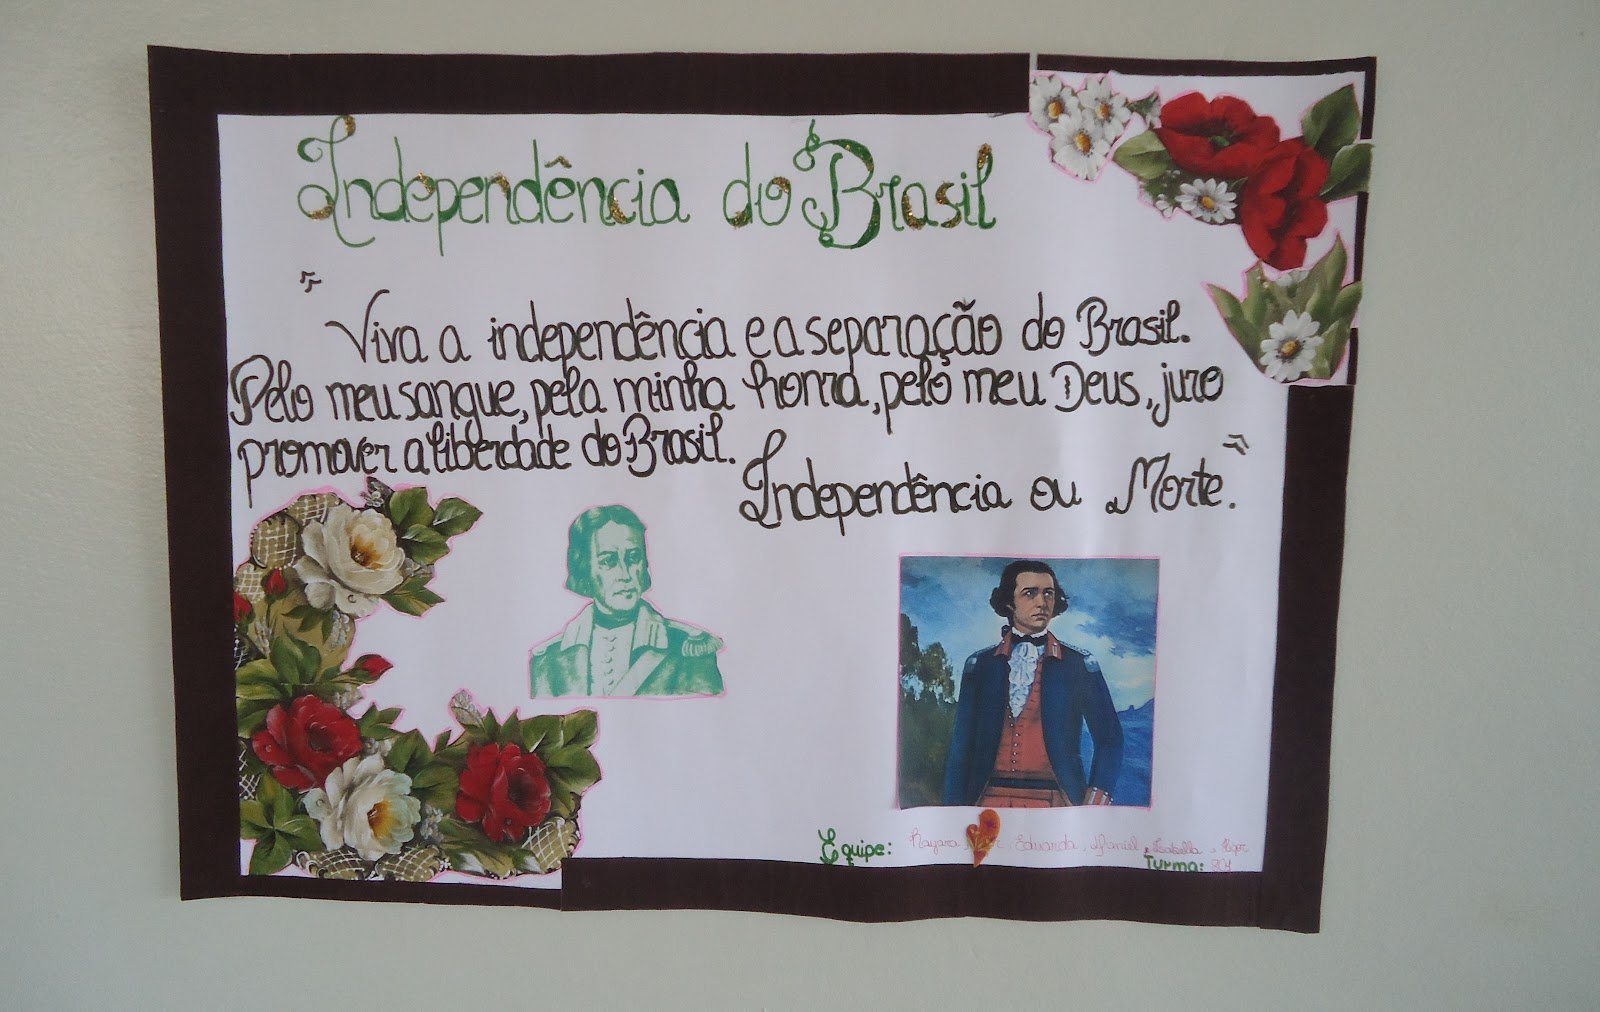 Independência do Brasil
"Viva a independência e a separação do Brasil.
Pelo meu sangue, pela minha honra, pelo meu Deus, juro
promover a liberdade do Brasil.
Independência ou Morte."
Equipe: Nayara, Eduarda, Daniel, Isabella, Igor
Turma: 801